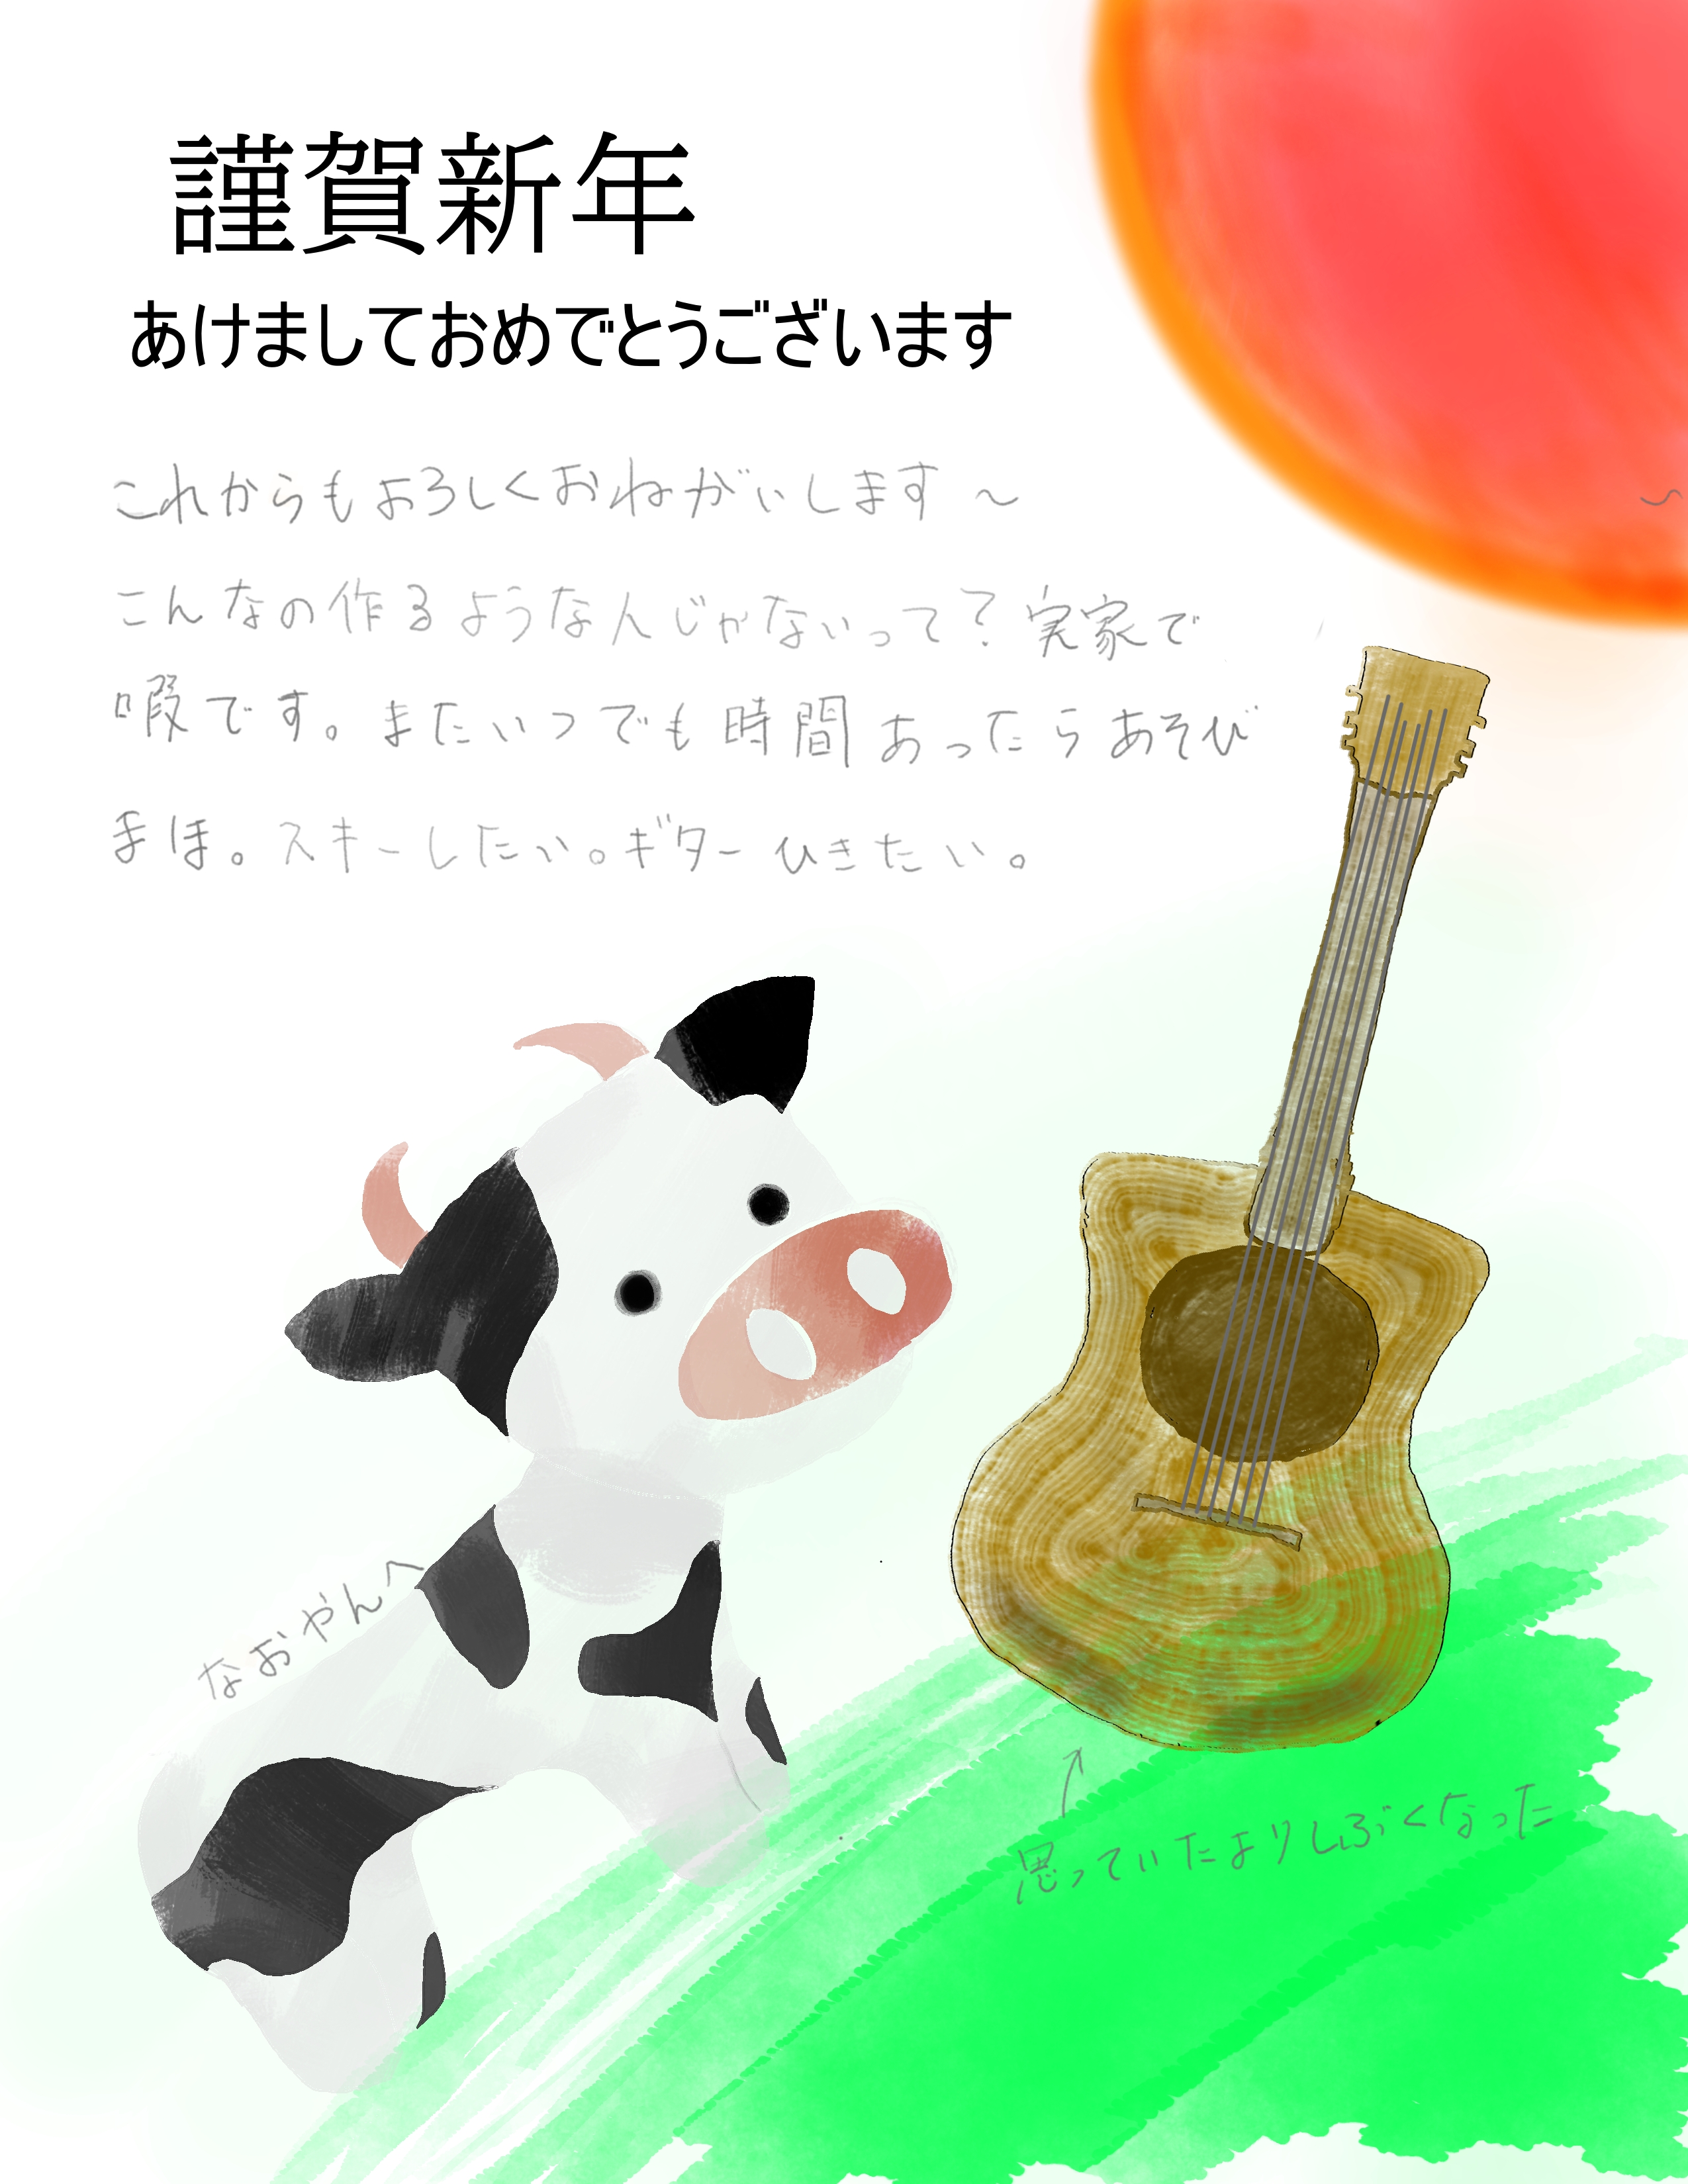 謹賀新年
あけましておめでとうございます
これからもよろしくおねがいします〜
こんなの作るような人じゃないって？実家で
暇です。またいつでも時間あったらあそび
まほ。スキーしたい。ギターひきたい。
なおやんへ
↑
思っていたよりしぶくなった